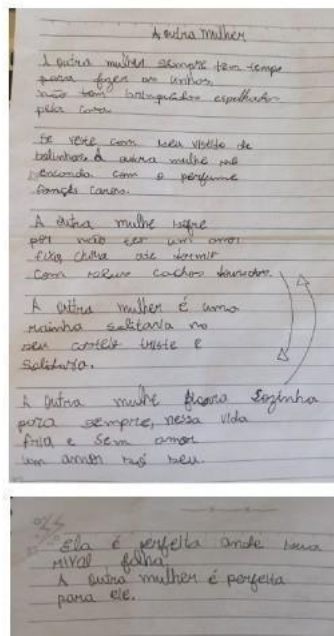 A outra mulher
A outra mulher sempre tem tempo
para fazer as unhas,
não tem brinquedos espalhados
pela casa.
Se veste com seu vistido de
bolinhas. A outra mulhe me
com o perfume
françês
A outra mulhe sofre
por não ter um amor
fixo, chora até dormir
com
A outra mulher é uma
rainha solitaria no
seu castelo triste e
solidario.
A outra mulhe ficara Sozinha
para sempre, nessa vida
fria e sem amor
um amor só seu.
Ela é perfeita onde sua
rival falha.
A outra mulher é perfeita
para ele.